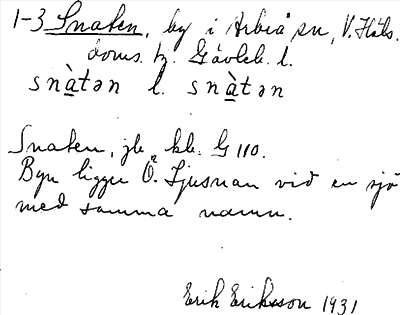 1-3 Snaten, by i Arbrå sn, V. Häls.
doms. h. Gävleb. l.
snàtən l. snàtən
Snaten, jb. kb. G 110.
Byn ligger Ö. Ljusnan vid en sjö
med samma namn.
Erik Eriksson 1931